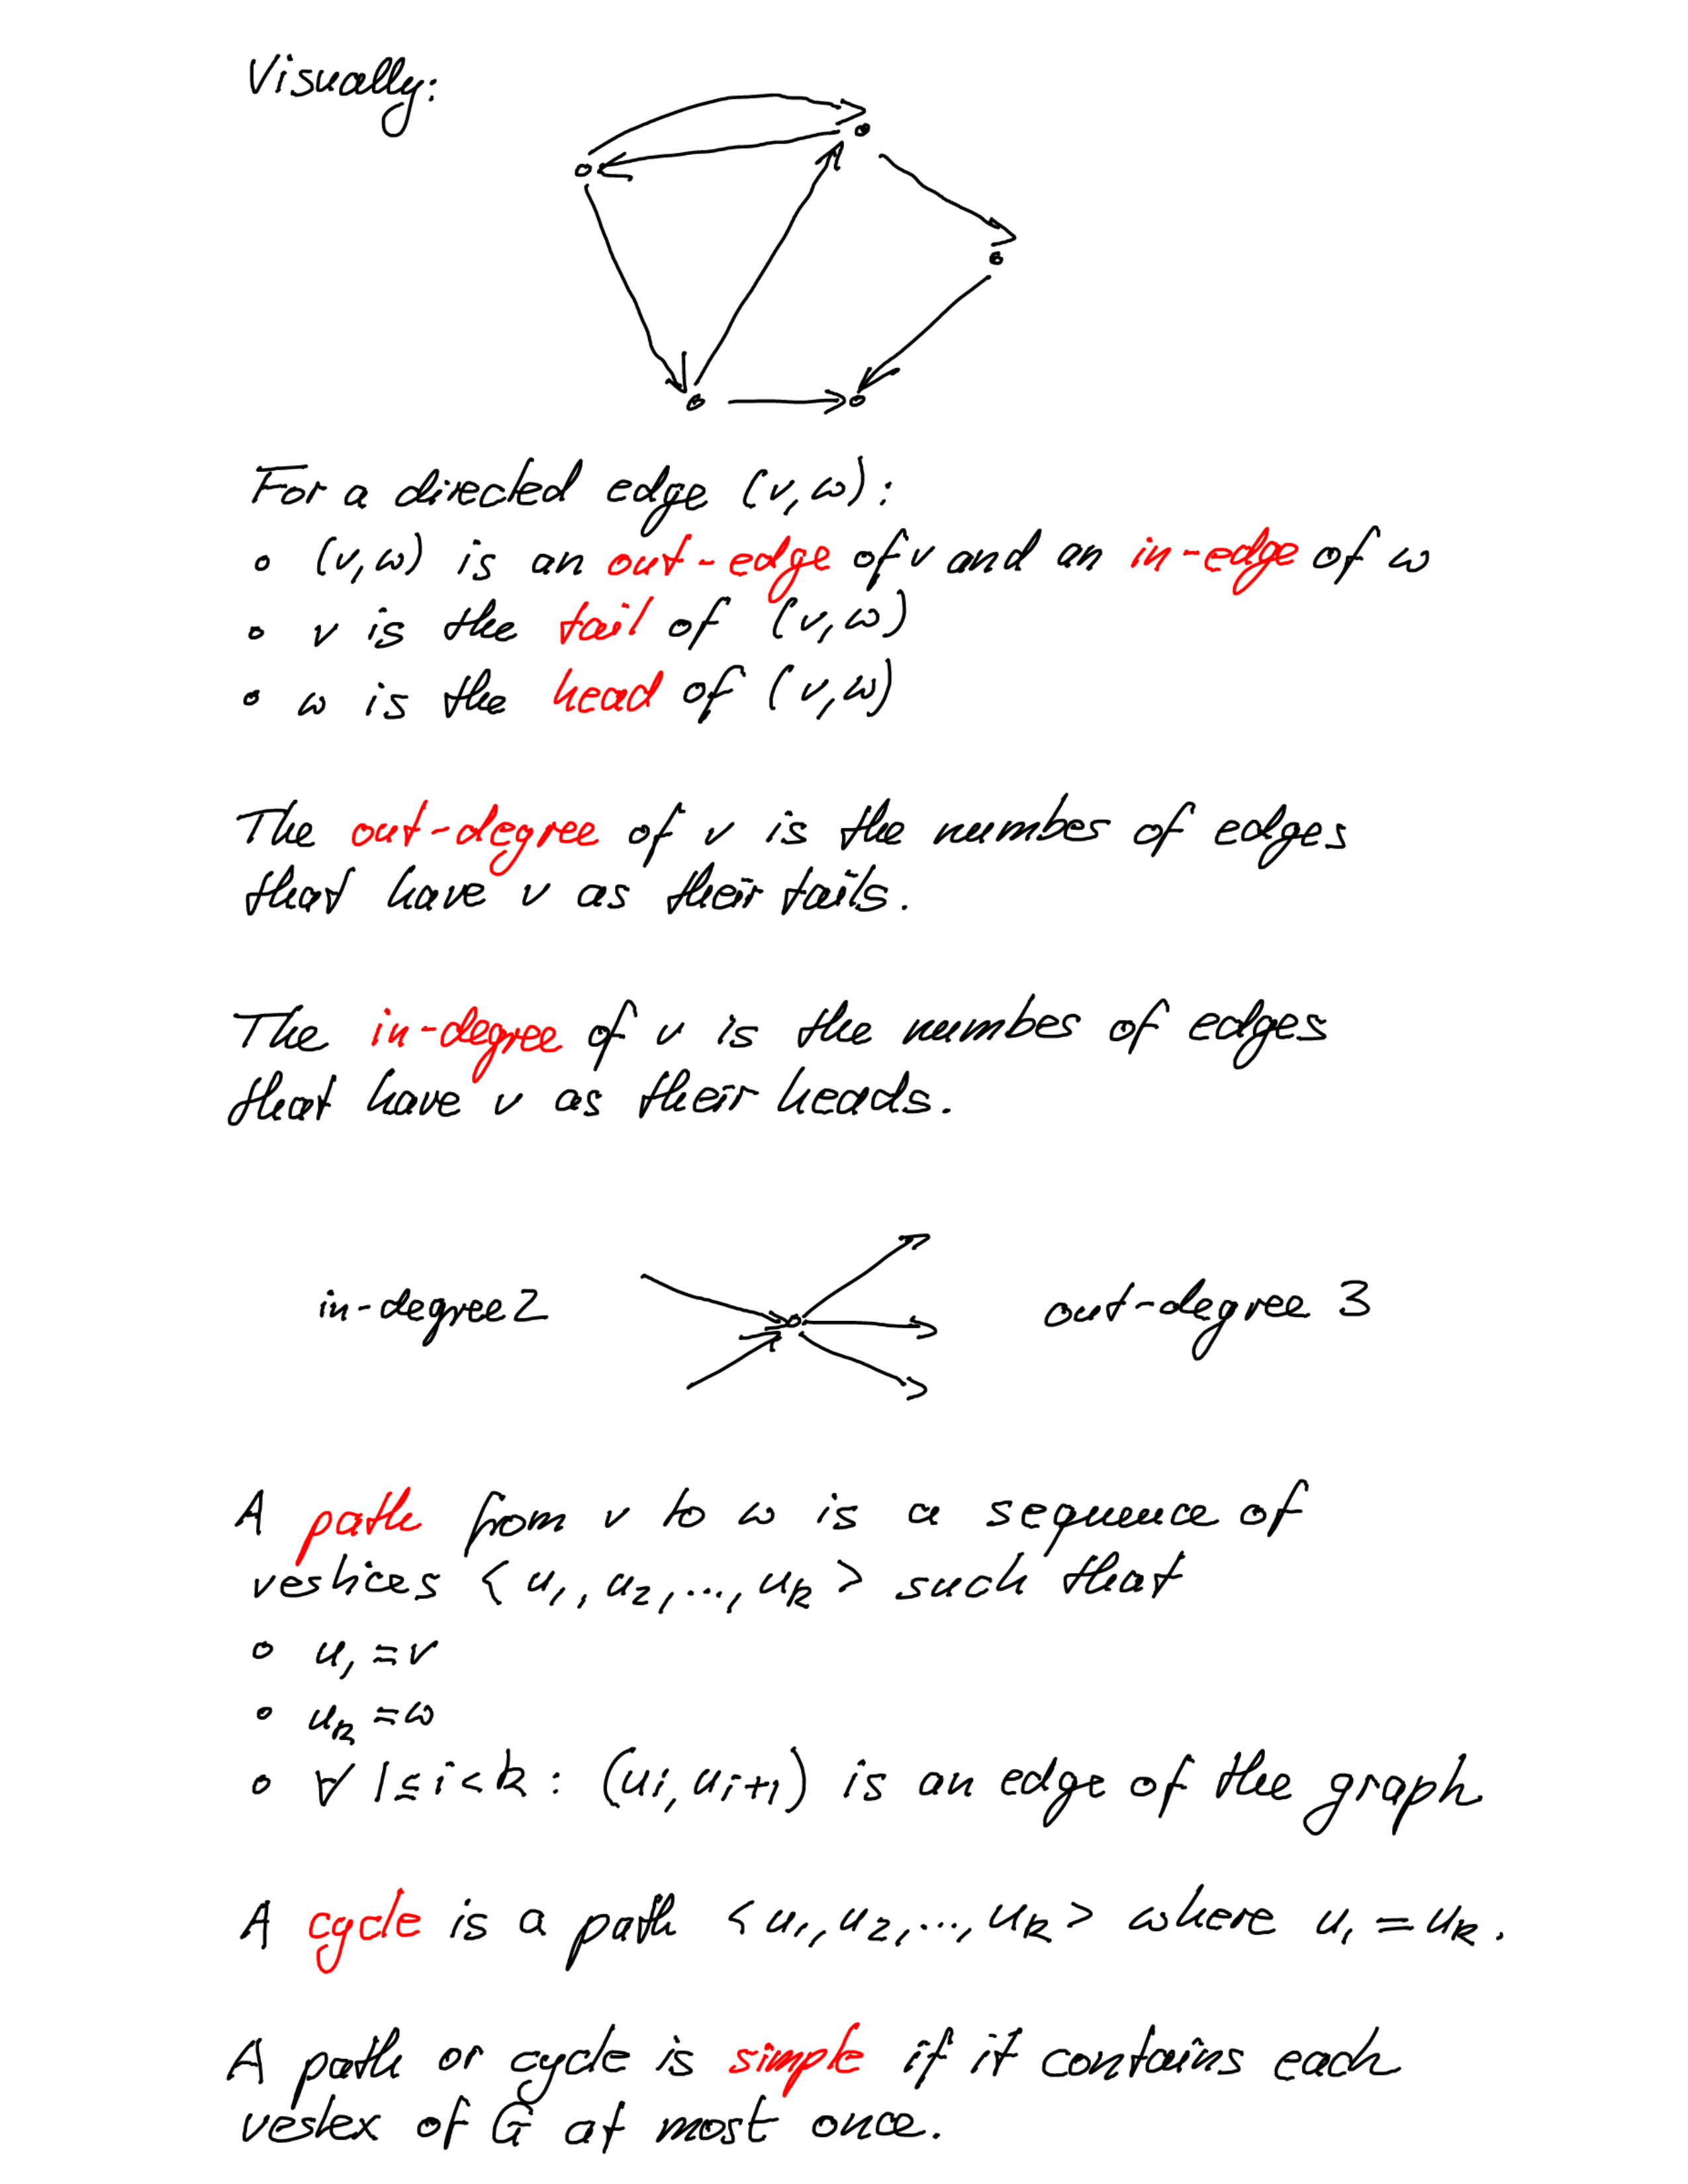 Visually:
For a directed edge (v,w):
∘ (v,w) is an out-edge of v and an in-edge of w
∘ v is the tail of (v,w)
∘ w is the head of (v,w)
The out-degree of v is the number of edges
that have v as their tails.
The in-degree of v is the number of edges
that have v as their heads.
in-degree 2 out-degree 3
A path from v to w is a sequence of
vertices <u₁, u₂, ..., uₖ> such that
∘ u₁ = v
∘ uₖ = w
∘ ∀ 1 ≤ i < k : (uᵢ, uᵢ₊₁) is an edge of the graph.
A cycle is a path <u₁, u₂, ..., uₖ> where u₁ = uₖ.
A path or cycle is simple if it contains each
vertex of G at most once.